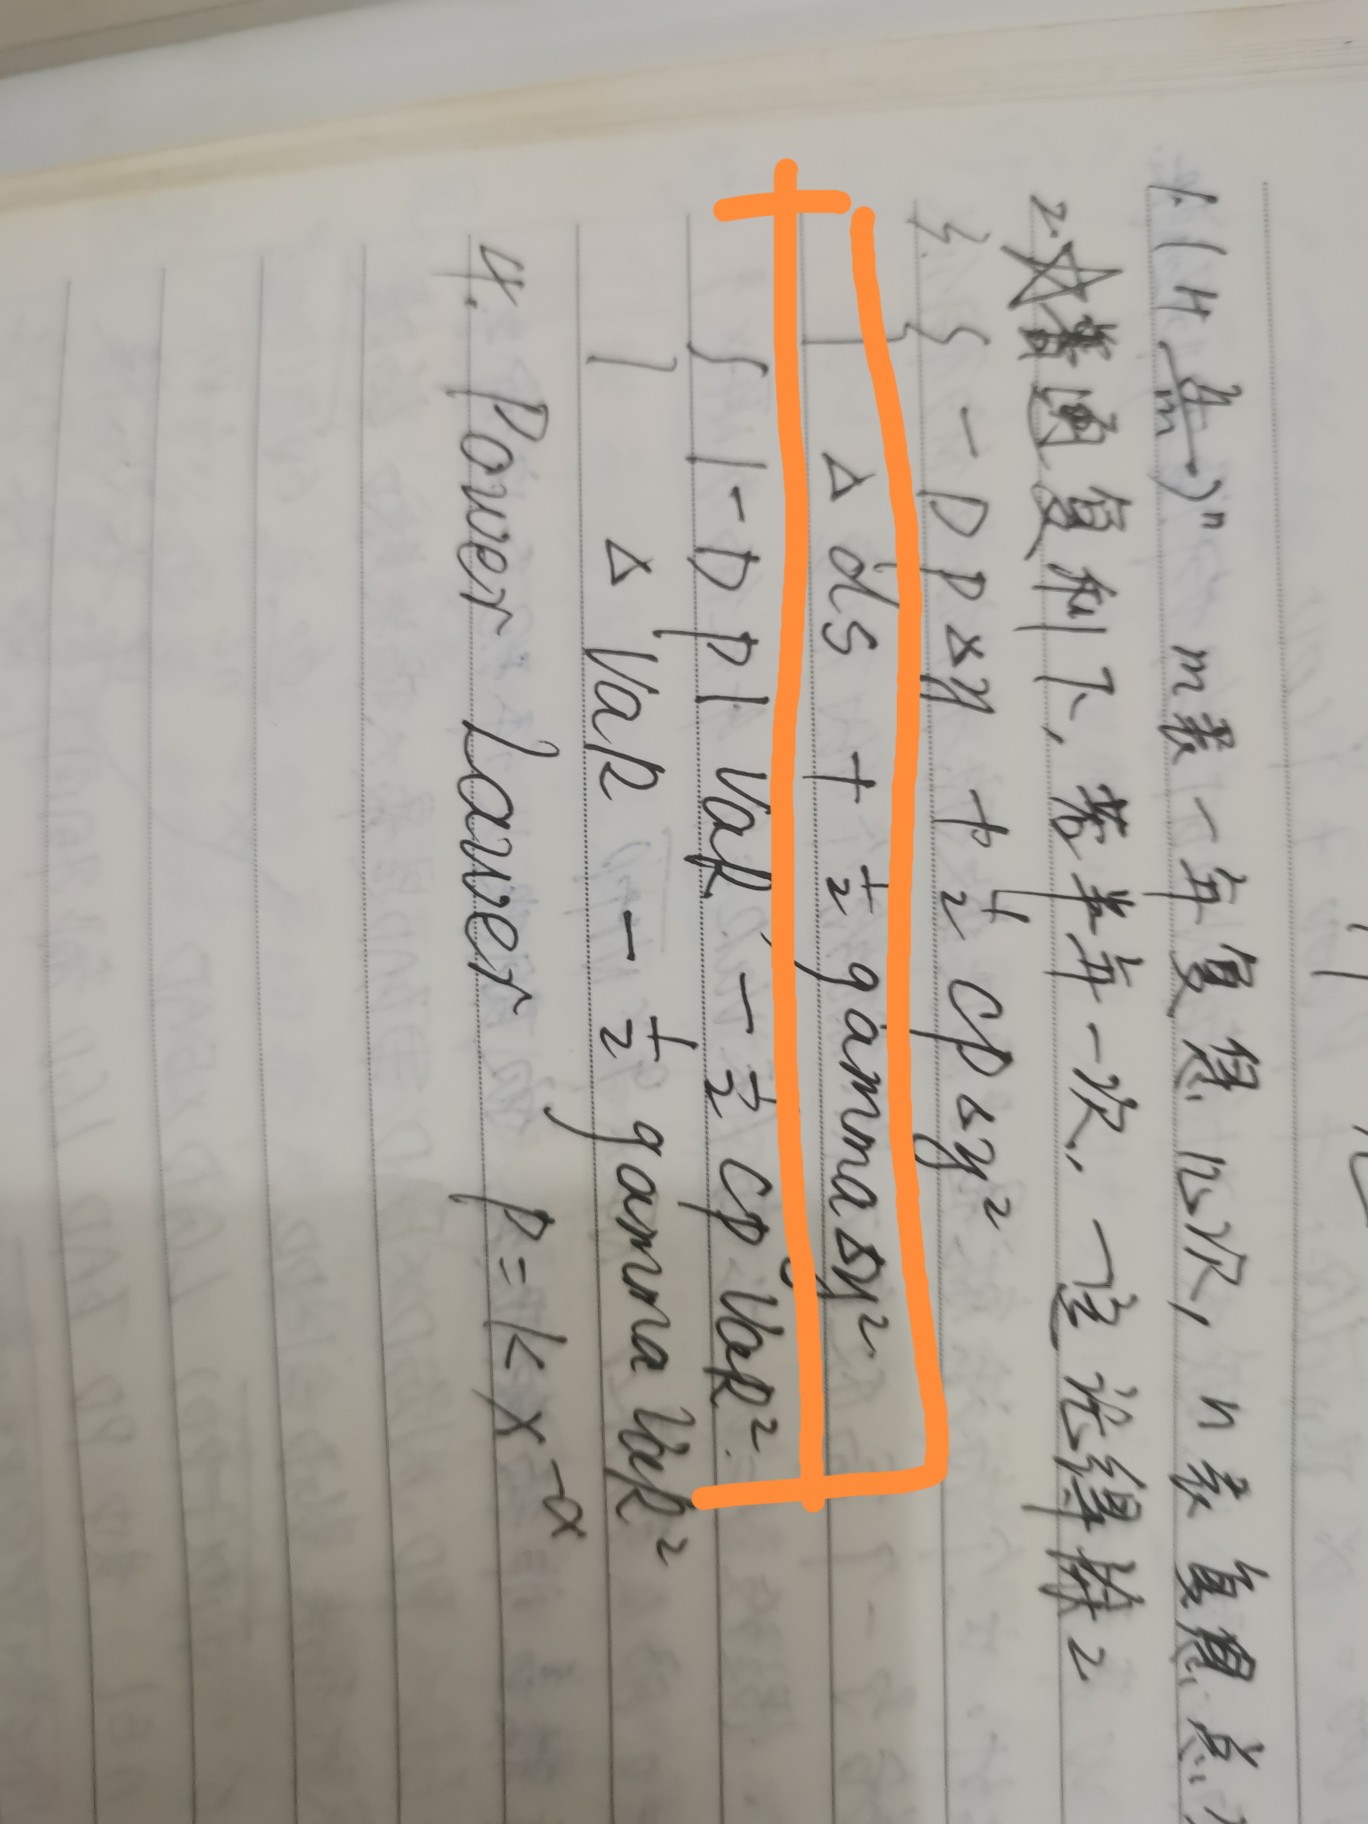 1. (1+ y/m)ⁿ m表一年复息m次, n表复息总
2. ☆普通复利下, 若半年一次, 一定记得除2
3. { - D P Δy + ½ C P Δy²
Δ ds + ½ gamma Δy²
{ | - D P | VaR - ½ C P VaR²
Δ VaR - ½ gamma VaR²
4. Power Lawer P = K X^-α